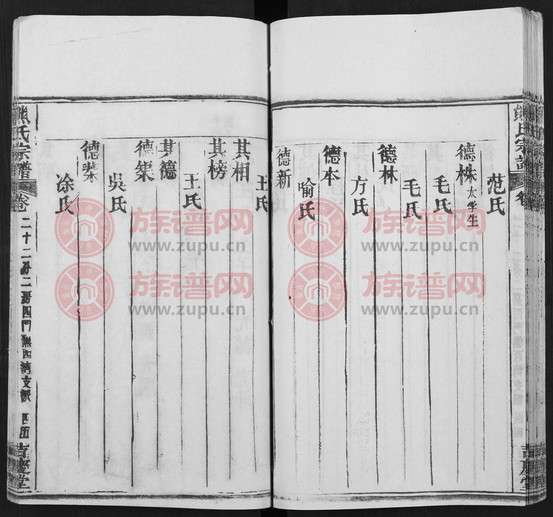 熊氏宗譜
卷
范氏
德株 太學生
毛氏
毛氏
德林
方氏
德本
喻氏
德新
王氏
其相
其榜
王氏
其德
德榘
吳氏
德棻
涂氏
熊氏宗譜
卷二十二
吉慶堂
族谱网
www.zupu.cn
族谱网
www.zupu.cn
族谱网
www.zupu.cn
族谱网
www.zupu.cn